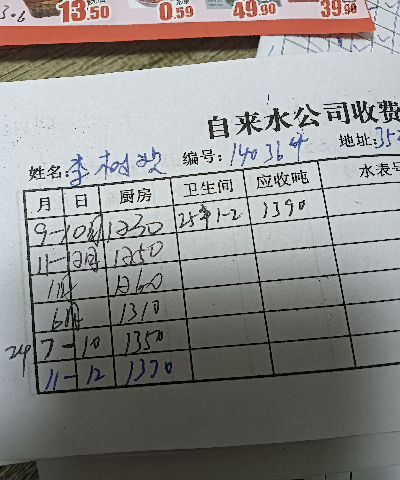 3.6 13.50 0.59 49.90 39.90
自来水公司收费
姓名:李树欢 编号:140364 地址:352
月 日 厨房 卫生间 应收吨 水表号
9-10月 1230 25年1-2 1390
11-12月 1250
1月 1260
6月 1310
24 7-10 1350
11-12 1370